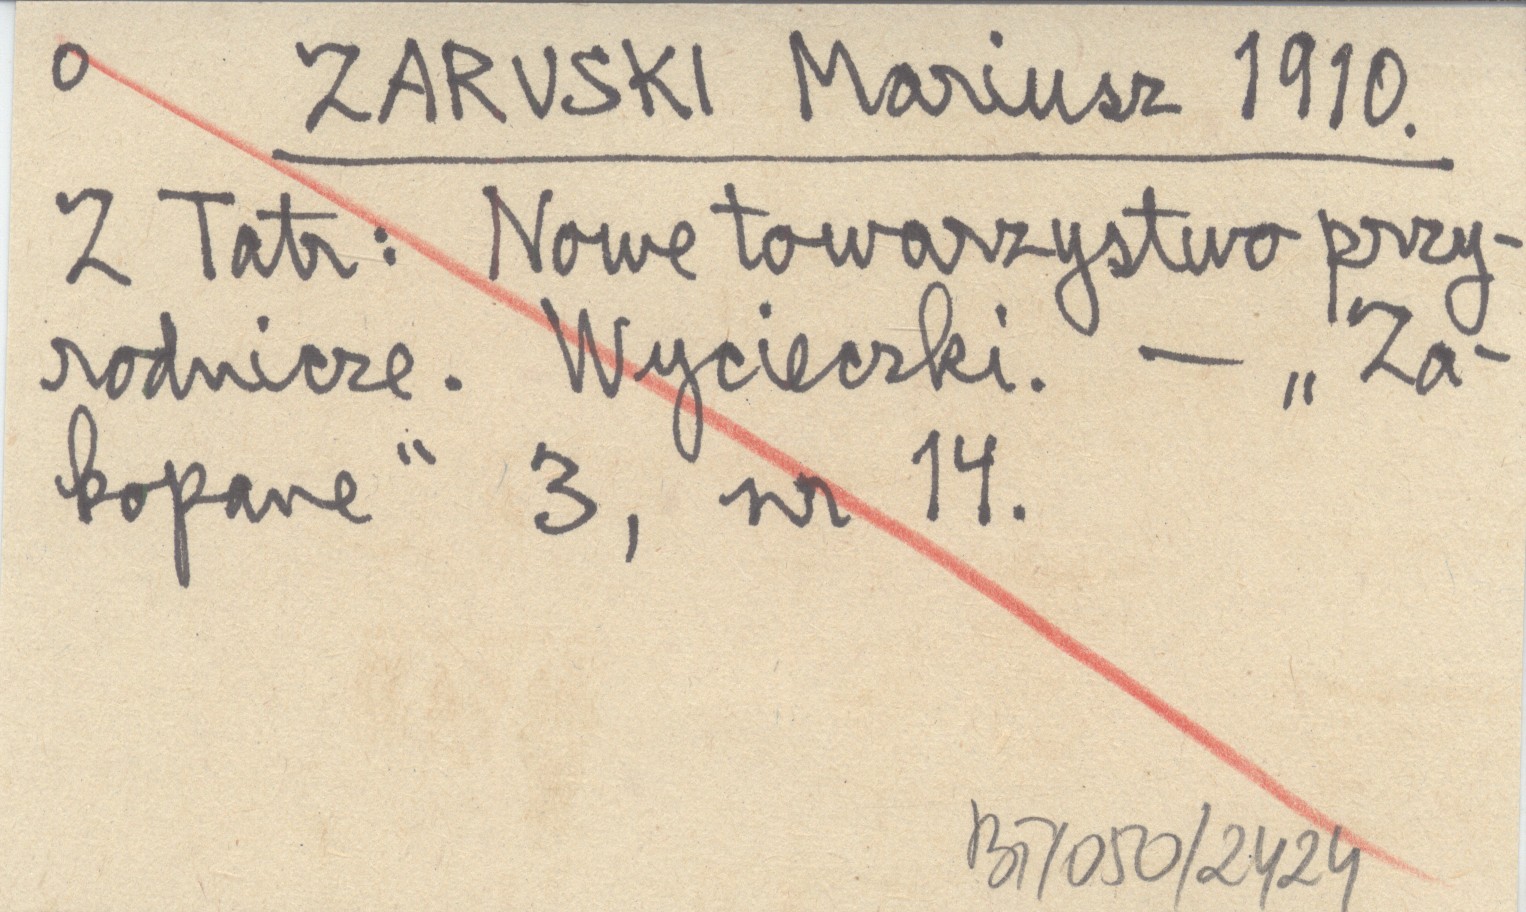 o ZARUSKI Mariusz 1910.
Z Tatr: Nowe towarzystwo przy-
rodnicze. Wycieczki. — „Za-
kopane“ 3, nr 14.
BT/050/2424